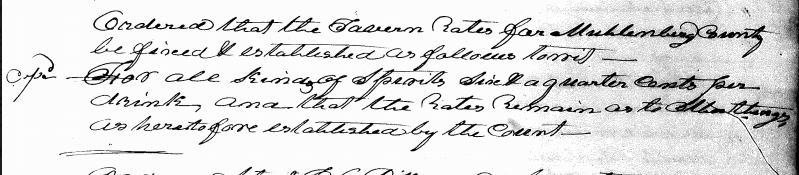 Ordered that the Tavern Rates for Muhlenberg County
be fixed & established as follows towit —
For all kinds of Spirits Six & a quarter Cents per
drink, and that the Rates Remain as to Other things
as heretofore established by the Court —